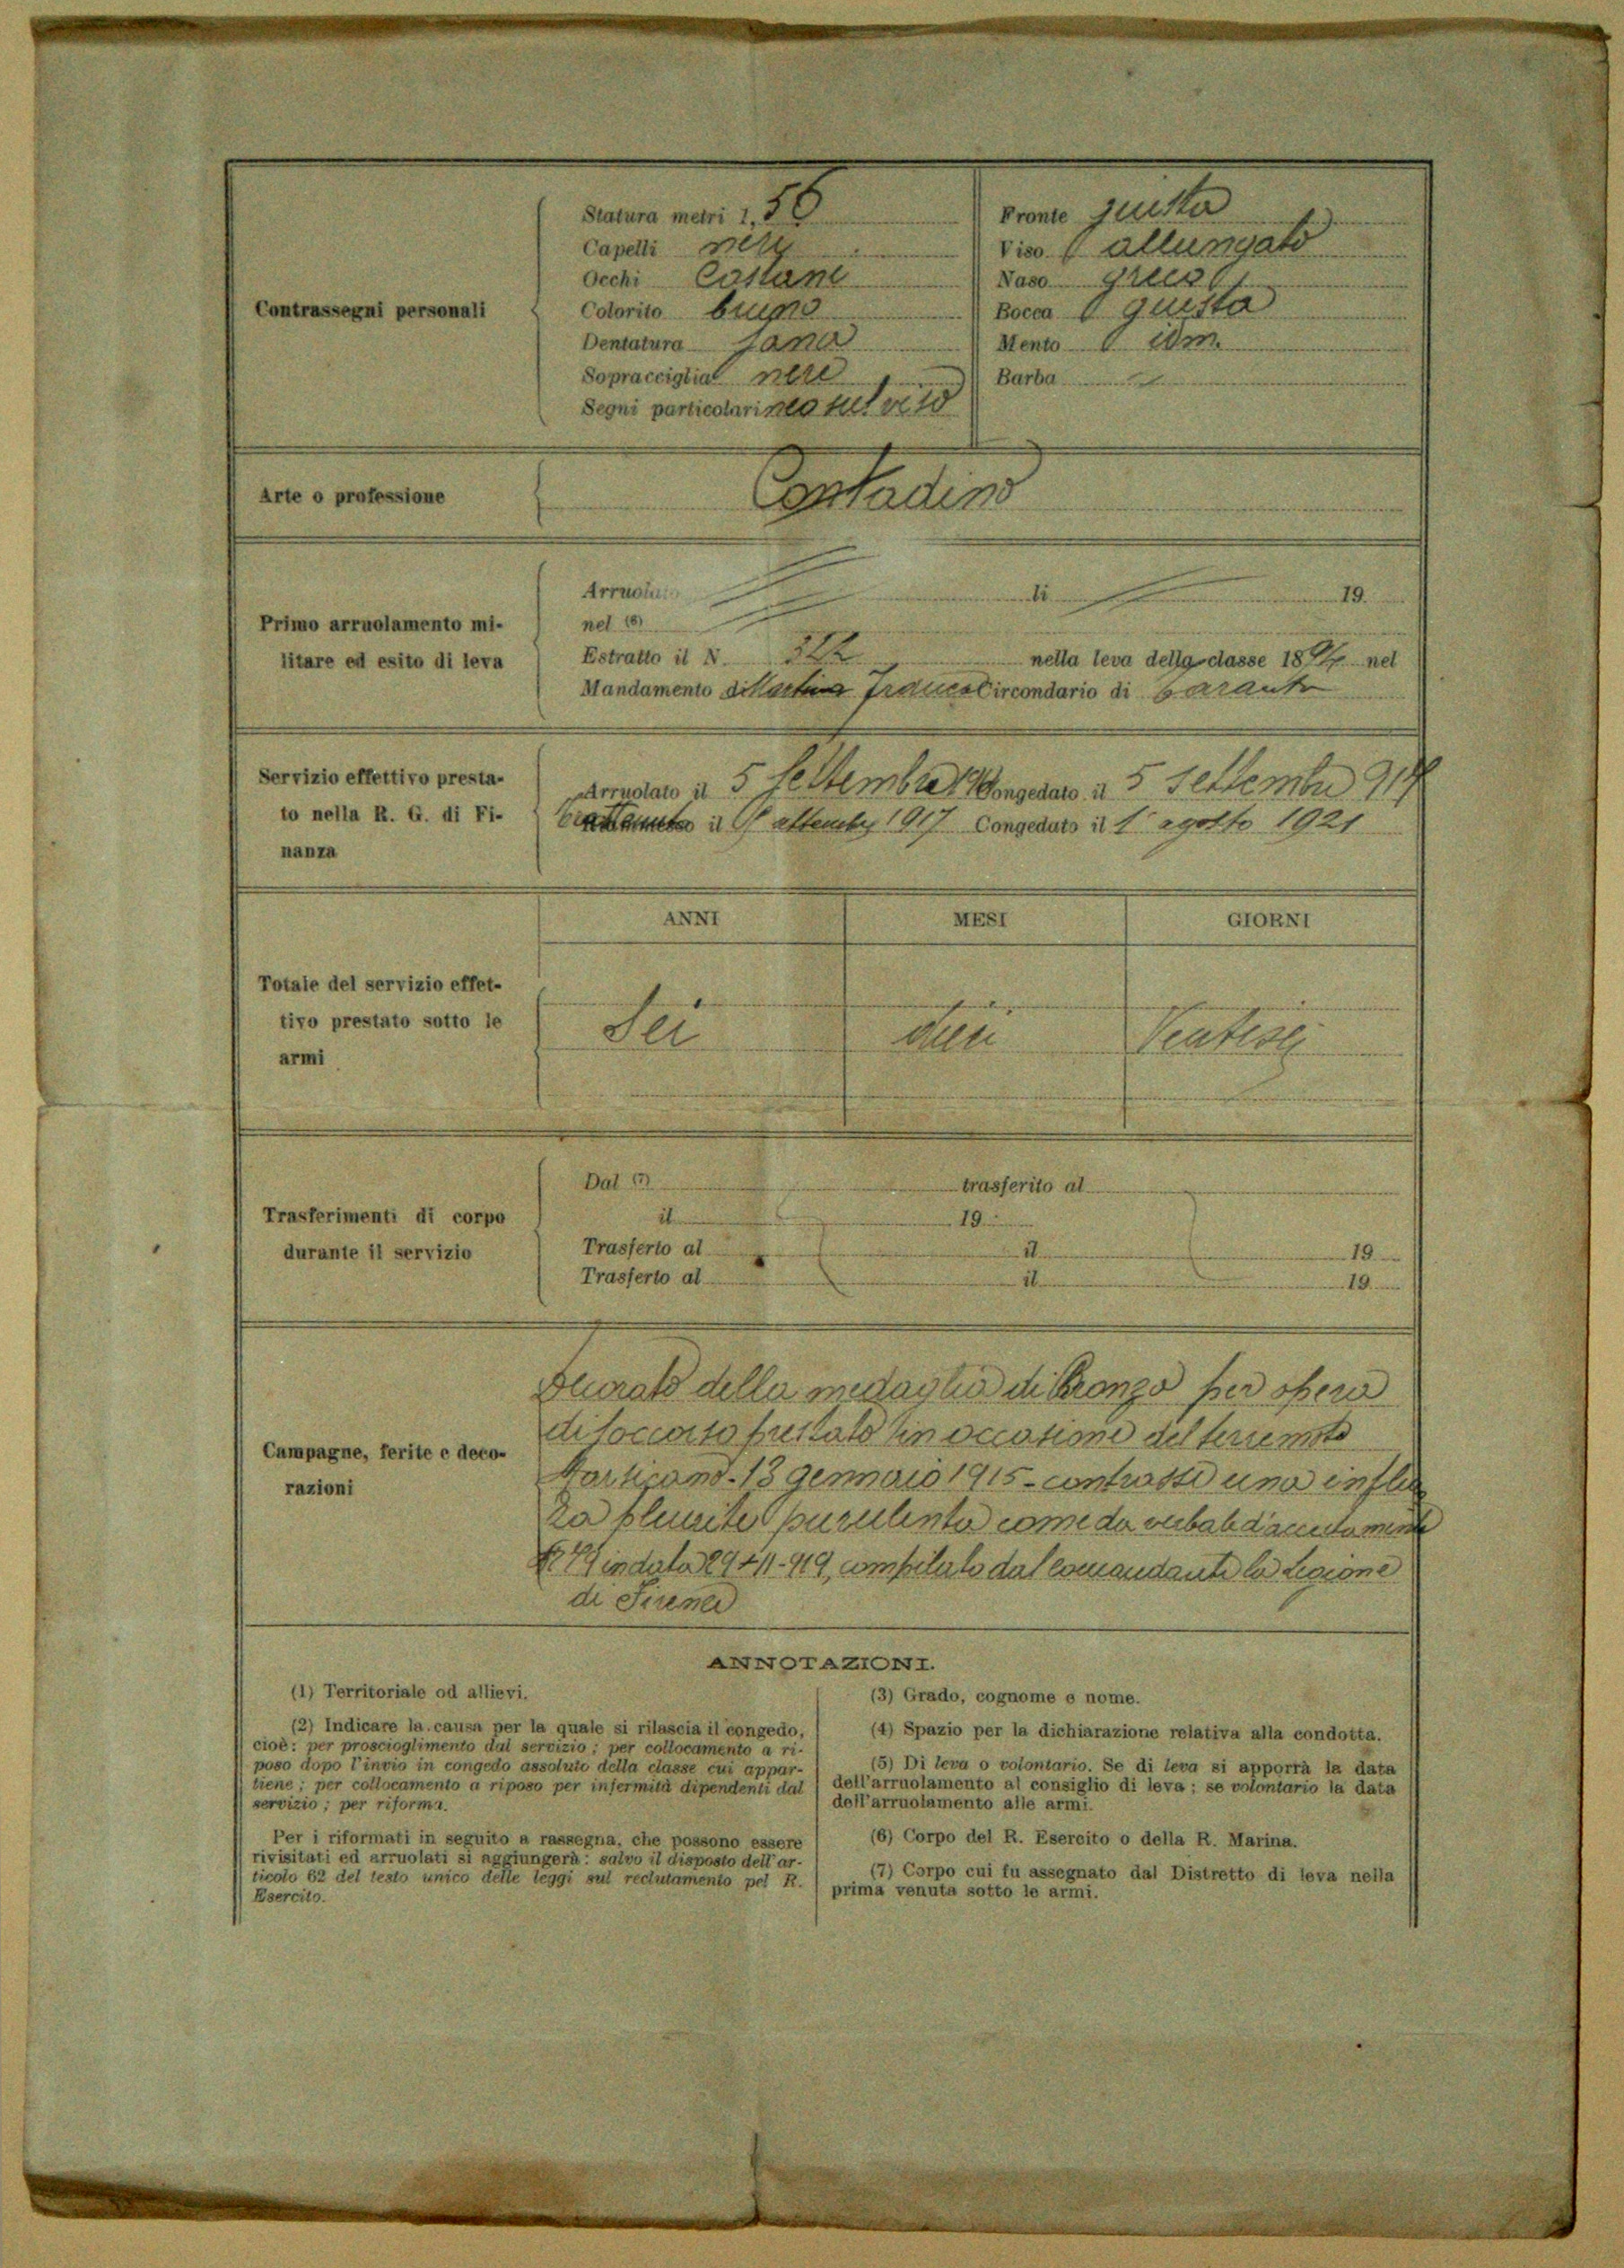 Contrassegni personali
Statura metri 1,56
Capelli neri
Occhi Castani
Colorito bruno
Dentatura sana
Sopracciglia nere
Segni particolari neo sul viso
Fronte giusta
Viso allungato
Naso greco
Bocca giusta
Mento idm.
Barba
Arte o professione
Contadino
Primo arruolamento mi-
litare ed esito di leva
Arruolato li 19
nel (6)
Estratto il N. nella leva della classe 189 nel
Mandamento di Martina Franca Circondario di Taranto
Servizio effettivo presta-
to nella R. G. di Fi-
nanza
Arruolato il 5 Settembre Congedato il 5 Settembre 917
il settembre 1917 Congedato il 1° agosto 1921
Totale del servizio effet-
tivo prestato sotto le
armi
ANNI MESI GIORNI
Sei dieci Ventisei
Trasferimenti di corpo
durante il servizio
Dal (7) trasferito al
il 19
Trasferto al il 19
Trasferto al il 19
Campagne, ferite e deco-
razioni
della medaglia di Bronzo per opera
di soccorso prestato in occasione del terremoto
Marsicano - 13 gennaio 1915 - contrasse una
pleurite purulenta come da verbale d'accertamento
in data compilato dal comandante la Legione
di Firenze
ANNOTAZIONI.
(1) Territoriale od allievi.
(2) Indicare la causa per la quale si rilascia il congedo,
cioè: per proscioglimento dal servizio; per collocamento a ri-
poso dopo l'invio in congedo assoluto della classe cui appar-
tiene; per collocamento a riposo per infermità dipendenti dal
servizio; per riforma.
Per i riformati in seguito a rassegna, che possono essere
rivisitati ed arruolati si aggiungerà: salvo il disposto dell'ar-
ticolo 62 del testo unico delle leggi sul reclutamento pel R.
Esercito.
(3) Grado, cognome e nome.
(4) Spazio per la dichiarazione relativa alla condotta.
(5) Di leva o volontario. Se di leva si apporrà la data
dell'arruolamento al consiglio di leva; se volontario la data
dell'arruolamento alle armi.
(6) Corpo del R. Esercito o della R. Marina.
(7) Corpo cui fu assegnato dal Distretto di leva nella
prima venuta sotto le armi.